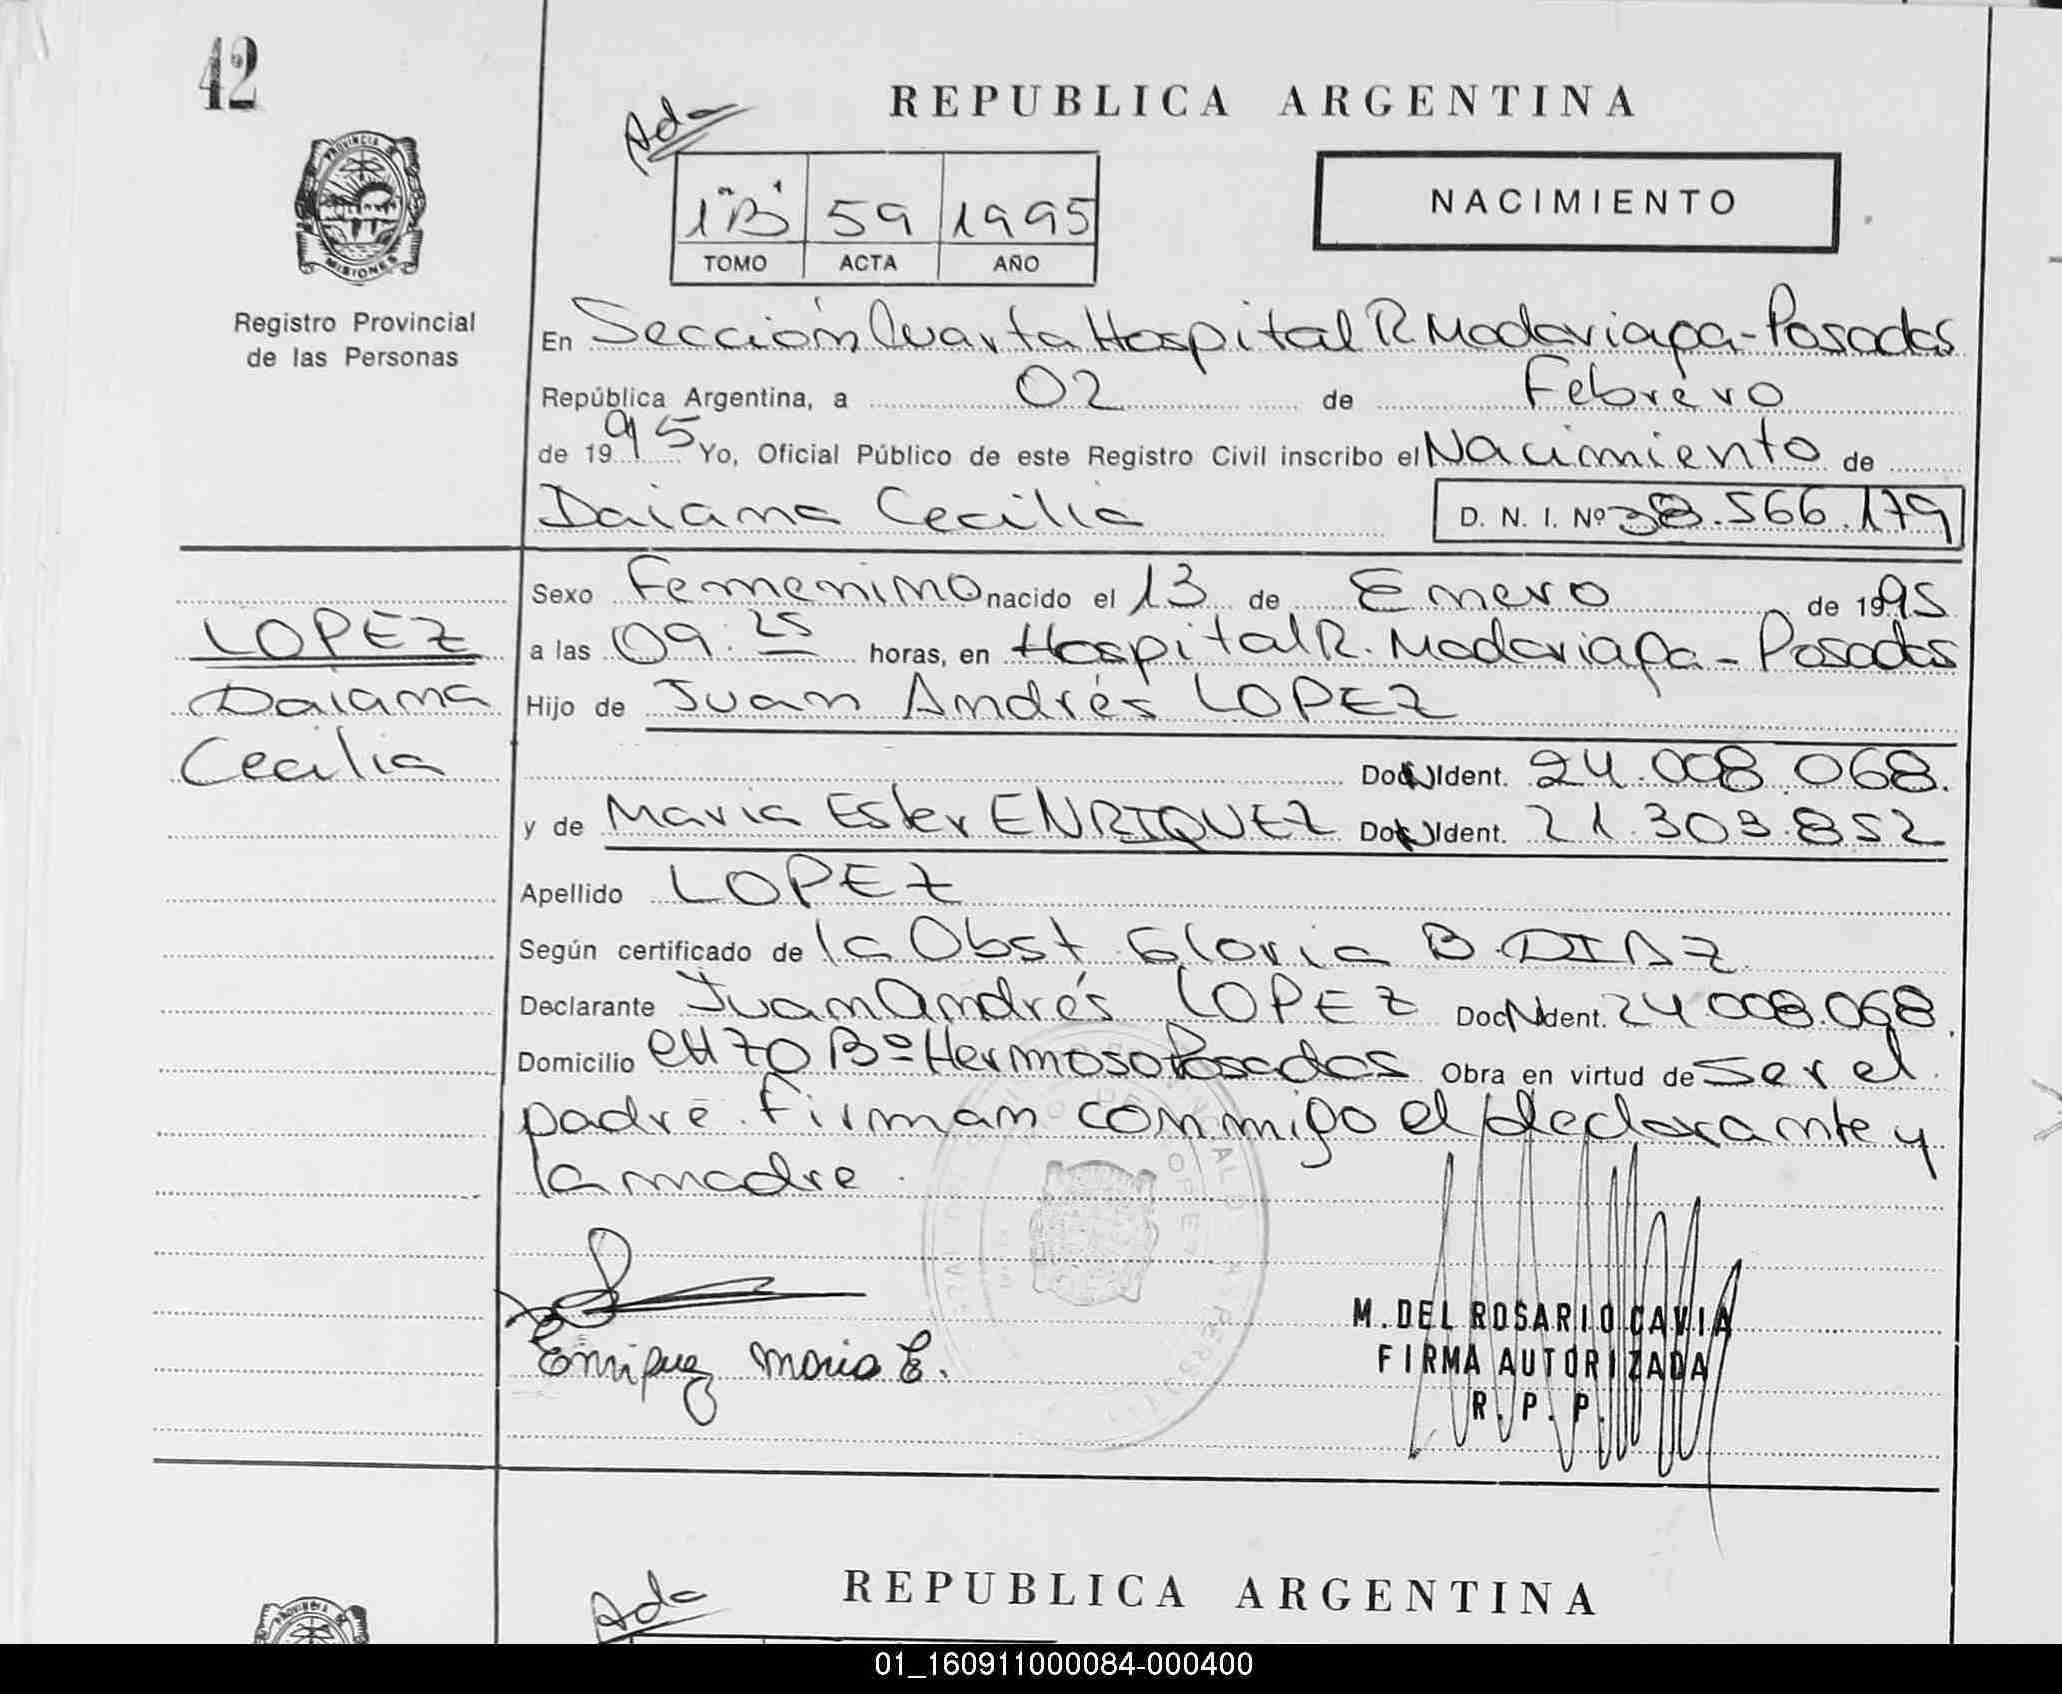 42
Ada
REPUBLICA ARGENTINA
NACIMIENTO
1"B" 59 1995
TOMO ACTA AÑO
PROVINCIA DE
MISIONES
Registro Provincial
de las Personas
En Sección Cuarta Hospital R. Madariaga - Posadas
República Argentina, a 02 de Febrero
de 1995 Yo, Oficial Público de este Registro Civil inscribo el Nacimiento de
Daiana Cecilia D. N. I. Nº 38.566.179
Sexo Femenino nacido el 13 de Enero de 1995
a las 09:25 horas, en Hospital R. Madariaga - Posadas
Hijo de Juan Andrés LOPEZ
Doc N Ident. 24.008.068.
y de Maria Ester ENRIQUEZ Doc N Ident. 21.303.852
Apellido LOPEZ
Según certificado de la Obst. Gloria B. DIAZ
Declarante Juan Andrés LOPEZ Doc N Ident. 24.008.068.
Domicilio CH 70 Bº Hermoso Posadas Obra en virtud de ser el
padre. Firman conmigo el declarante y
la madre.
LOPEZ
Daiana
Cecilia
Enriquez Maria E.
M. DEL ROSARIO CAVIA
FIRMA AUTORIZADA
R. P. P.
Ada
REPUBLICA ARGENTINA
01_160911000084-000400